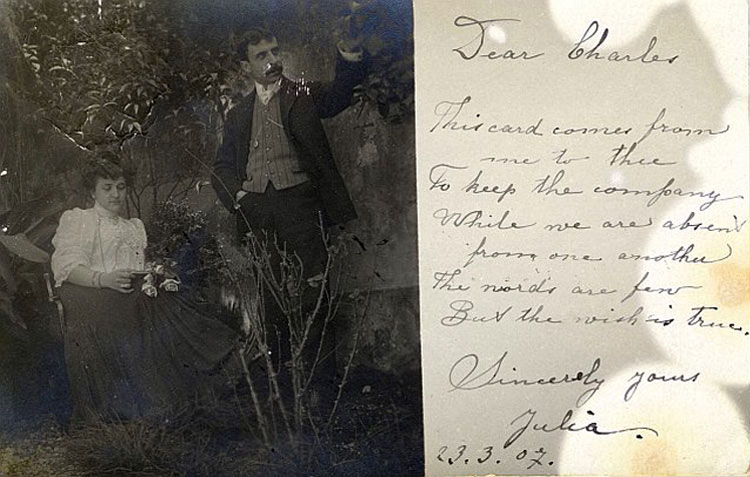 Dear Charles
This card comes from
me to thee
To keep the company
While we are absent
from one another
The words are few
But the wish is true.
Sincerely yours
Julia.
23.3.07.